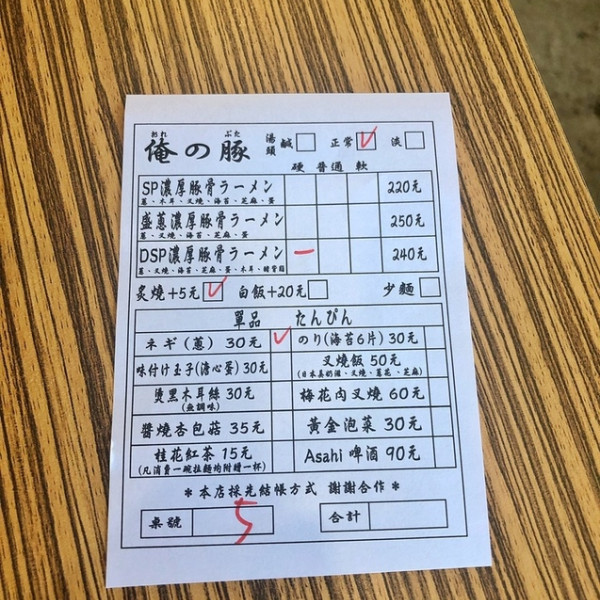 おれ ぶた
俺の豚 湯頭 鹹□ 正常☑ 淡□
硬 普通 軟
SP濃厚豚骨ラーメン 220元
蔥、木耳、叉燒、海苔、芝麻、蛋
盛蔥濃厚豚骨ラーメン 250元
蔥、叉燒、海苔、芝麻、蛋
DSP濃厚豚骨ラーメン 一 240元
蔥、叉燒、海苔、芝麻、蛋、木耳、甜背脂
炙燒+5元☑ 白飯+20元□ 少麵□
單品 たんぴん
ネギ(蔥) 30元 ✓ のり(海苔6片) 30元
味付け玉子(溏心蛋) 30元 叉燒飯 50元
(日本美奶滋、叉燒、蔥花、芝麻)
燙黑木耳絲 30元 梅花肉叉燒 60元
(魚調味)
醬燒杏包菇 35元 黃金泡菜 30元
桂花紅茶 15元 Asahi 啤酒 90元
(凡消費一碗拉麵均附贈一杯)
*本店採先結帳方式 謝謝合作*
桌號 5 合計